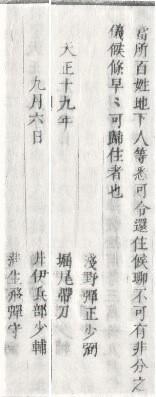 當所百姓地下人等悉可令還住候聊不可有非分之
儀候條早〻可歸住者也
天正十九年
九月六日
淺野彈正少弼
堀尾帶刀
井伊兵部少輔
蒲生飛彈守